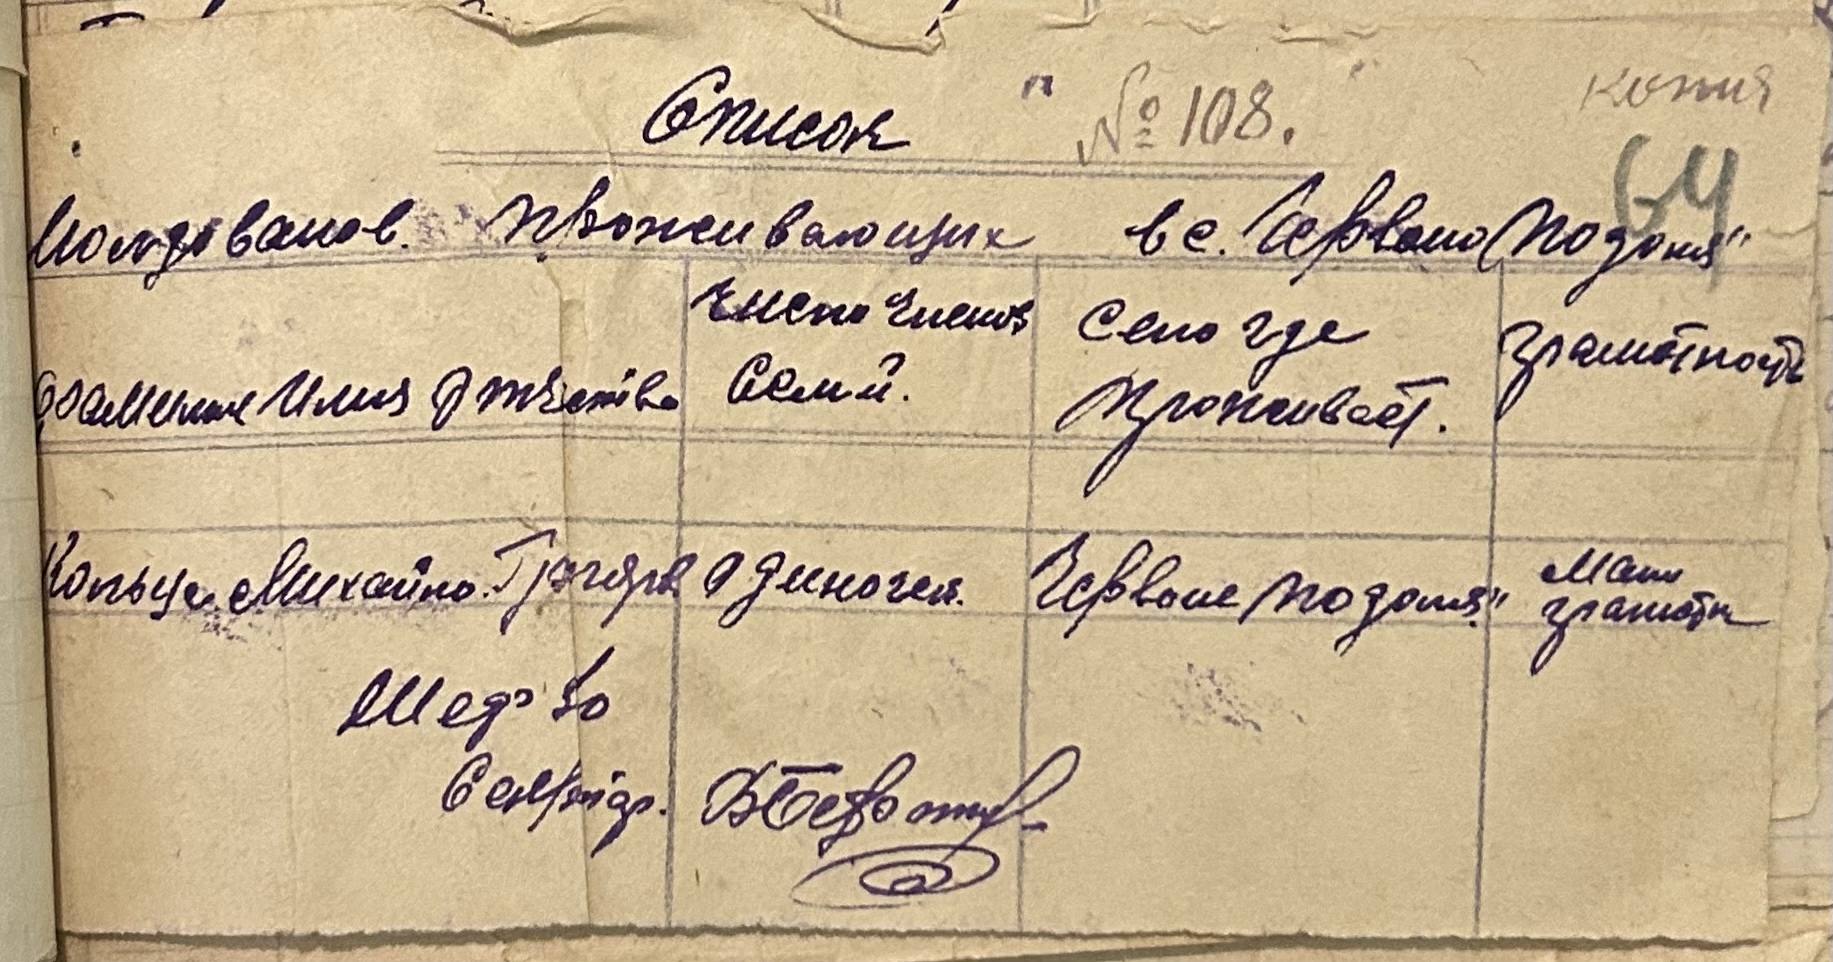 Список " № 108. "
копия
64
Молдованов. проживающих в с. Червоно Подоля"
Фамилия Имя Отчество
Число Членов Семй.
Село где Проживаєт.
Грамотность
Копыця Михайло. Григоров
Одиночка.
Червоне Подоля."
Мало грамотн
Секретар.